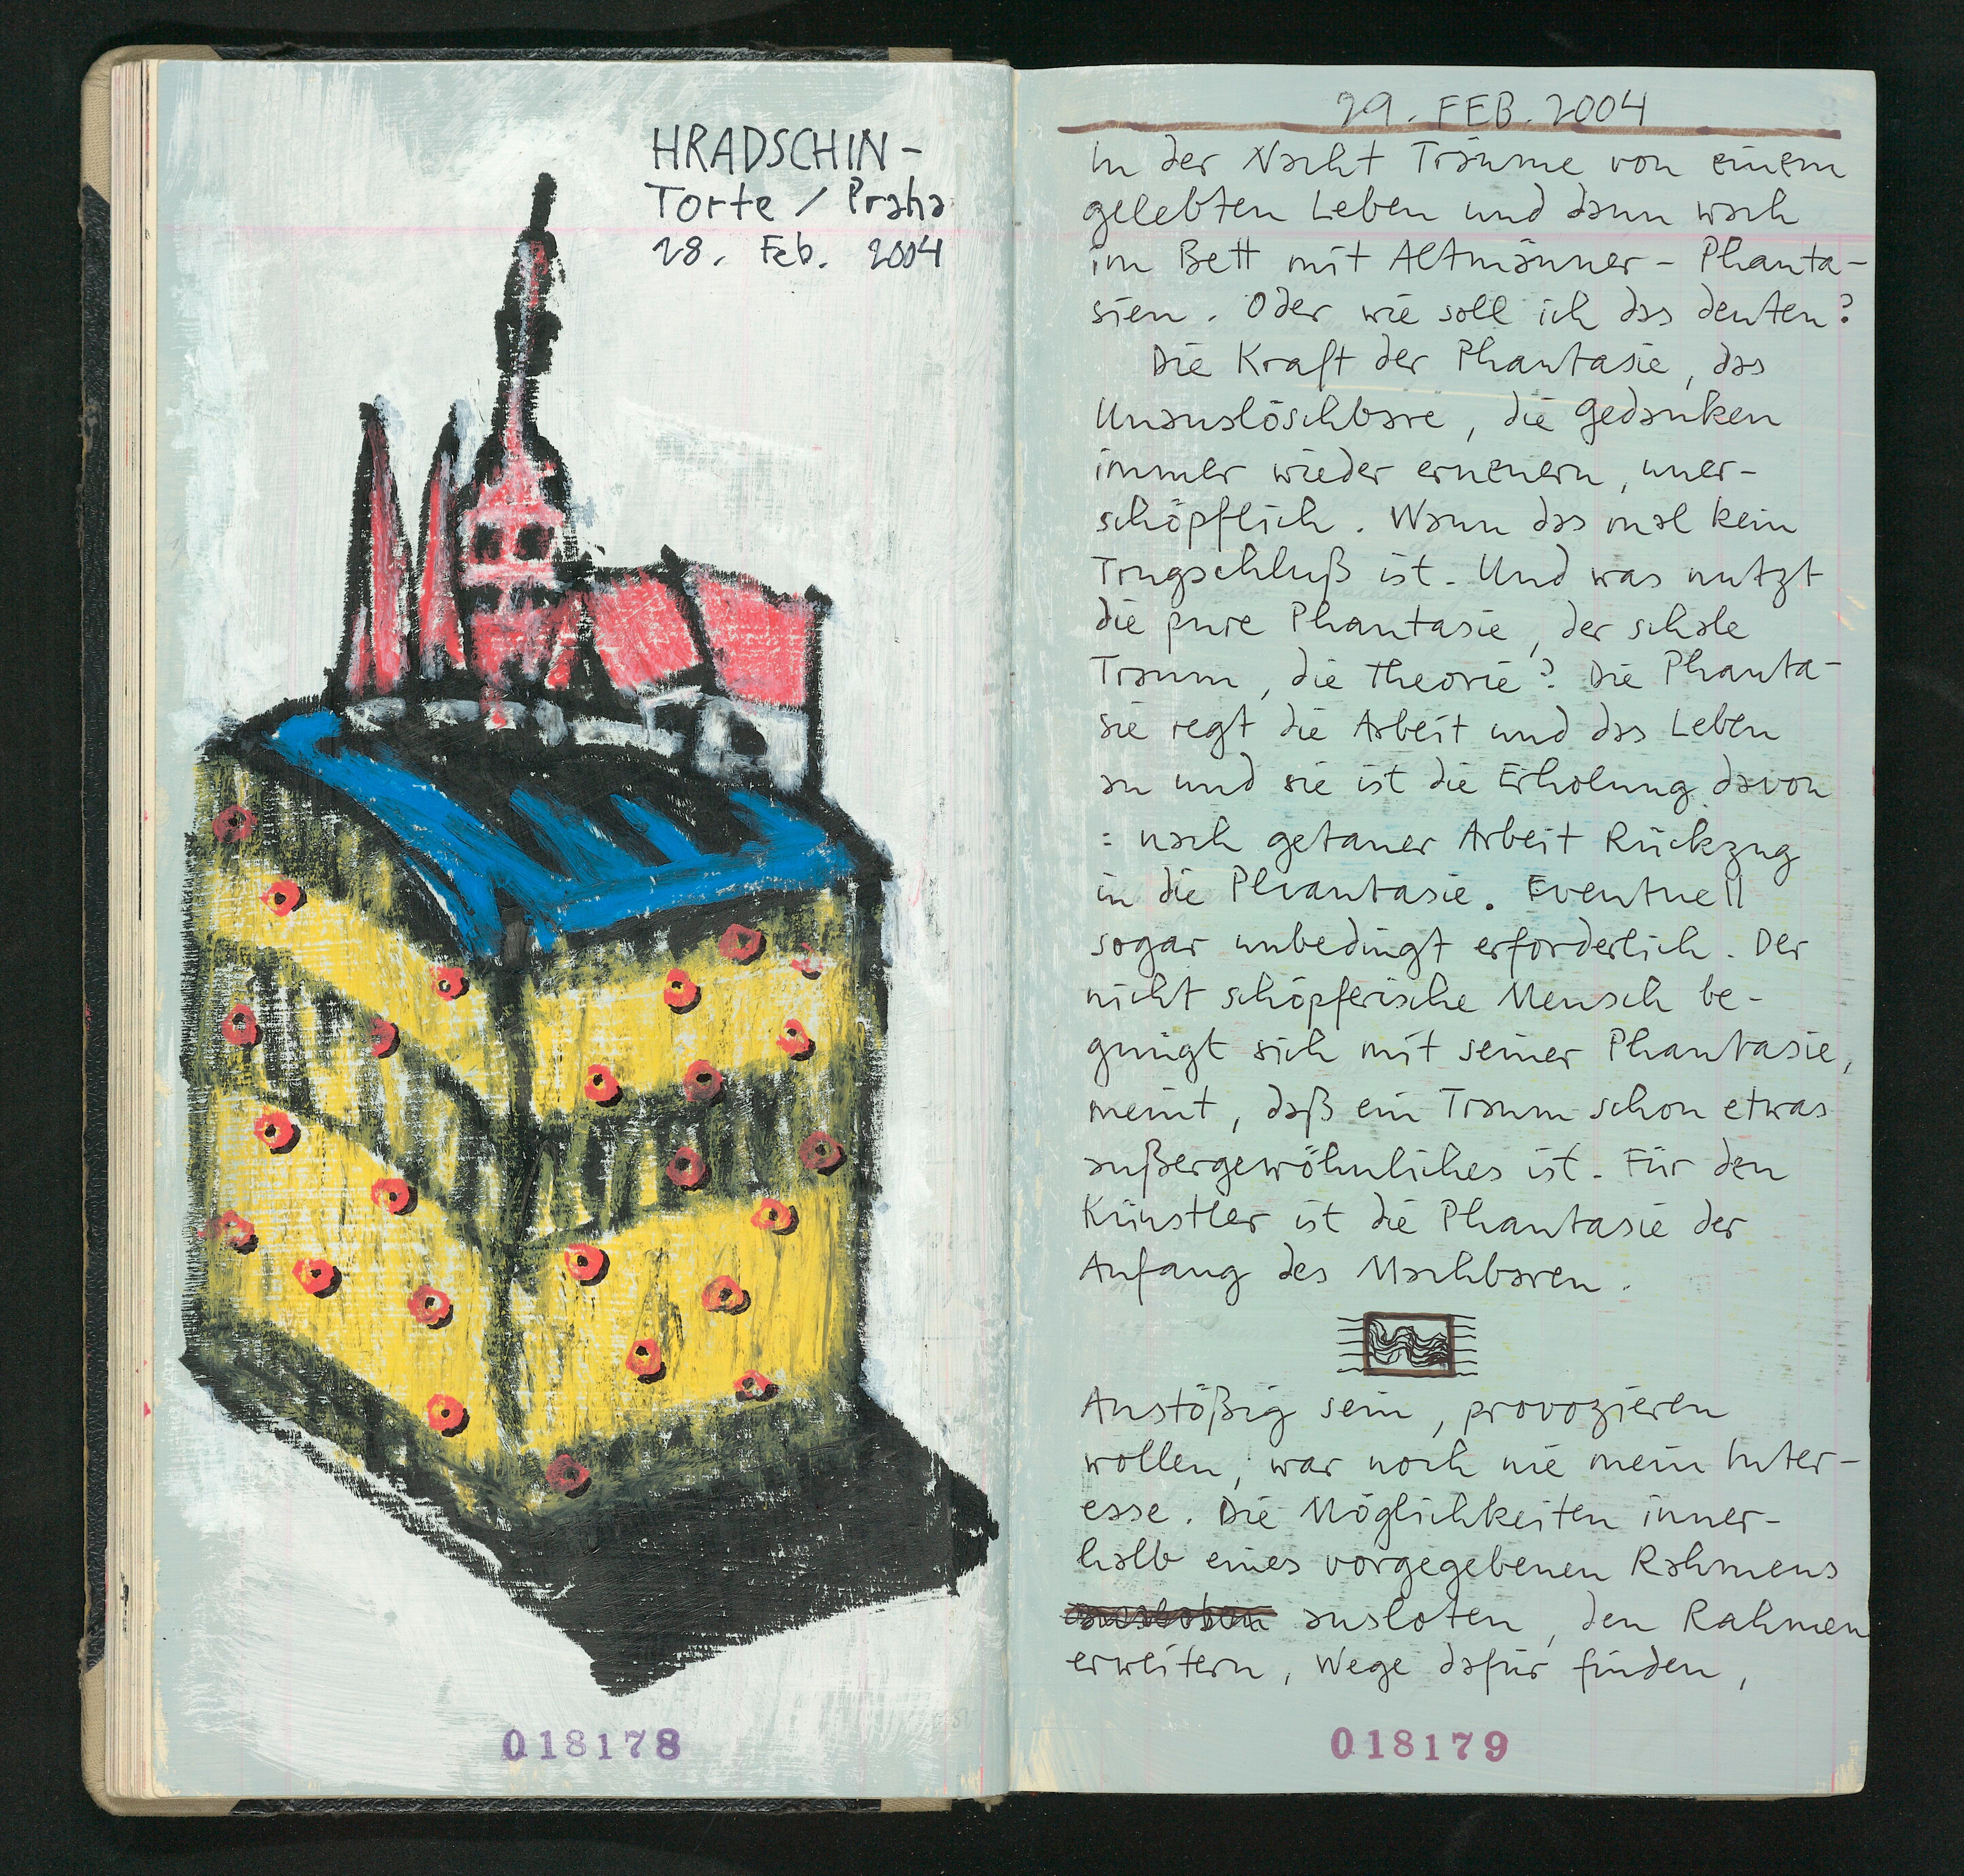 HRADSCHIN-
Torte / Praha
28. Feb. 2004
018178
29. FEB. 2004
In der Nacht Träume von einem
gelebten Leben und dann wach
im Bett mit Altmänner-Phanta-
sien. Oder wie soll ich das deuten?
Die Kraft der Phantasie, das
Unauslöschbare, die Gedanken
immer wieder erneuern, uner-
schöpflich. Wann das mal kein
Trugschluß ist. Und was nutzt
die pure Phantasie, der schale
Traum, die Theorie? Die Phanta-
sie regt die Arbeit und das Leben
an und sie ist die Erholung davon
: nach getaner Arbeit Rückzug
in die Phantasie. Eventuell
sogar unbedingt erforderlich. Der
nicht schöpferische Mensch be-
gnügt sich mit seiner Phantasie,
meint, daß ein Traum schon etwas
außergewöhnliches ist. Für den
Künstler ist die Phantasie der
Anfang des Machbaren.
Anstößig sein, provozieren
wollen, war noch nie mein Inter-
esse. Die Möglichkeiten inner-
halb eines vorgegebenen Rahmens
ausloten, den Rahmen
erweitern, Wege dafür finden,
018179